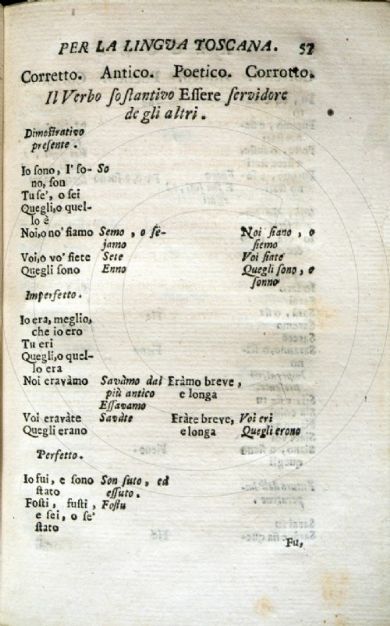 PER LA LINGVA TOSCANA. 57
Corretto. Antico. Poetico. Corrotto.
Il Verbo ſoſtantivo Eſſere ſervidore
de gli altri.
Dimoſtrativo
preſente.
Io sono, I' ſo- So
no, ſon
Tu ſe', o ſei
Quegli,o quel-
lo è
Noi,o no' ſiamo Semo, o ſe- Noi ſiano, o
jamo ſiemo
Voi,o vo' ſiete Sete Voi ſiate
Quegli ſono Enno Quegli ſono, o
ſonno
Imperfetto.
Io era, meglio,
che io ero
Tu eri
Quegli,o quel-
lo era
Noi eravàmo Savàmo dal Eràmo breve,
più antico e longa
Eſſavamo
Voi eravàte Savàte Eràte breve, Voi eri
Quegli erano e longa Quegli erono
Perfetto.
Io fui, e sono Son ſuto, ed
ſtato eſſuto.
Foſti, fuſti, Foſtu
e ſei, o ſe'
ſtato
Fu,